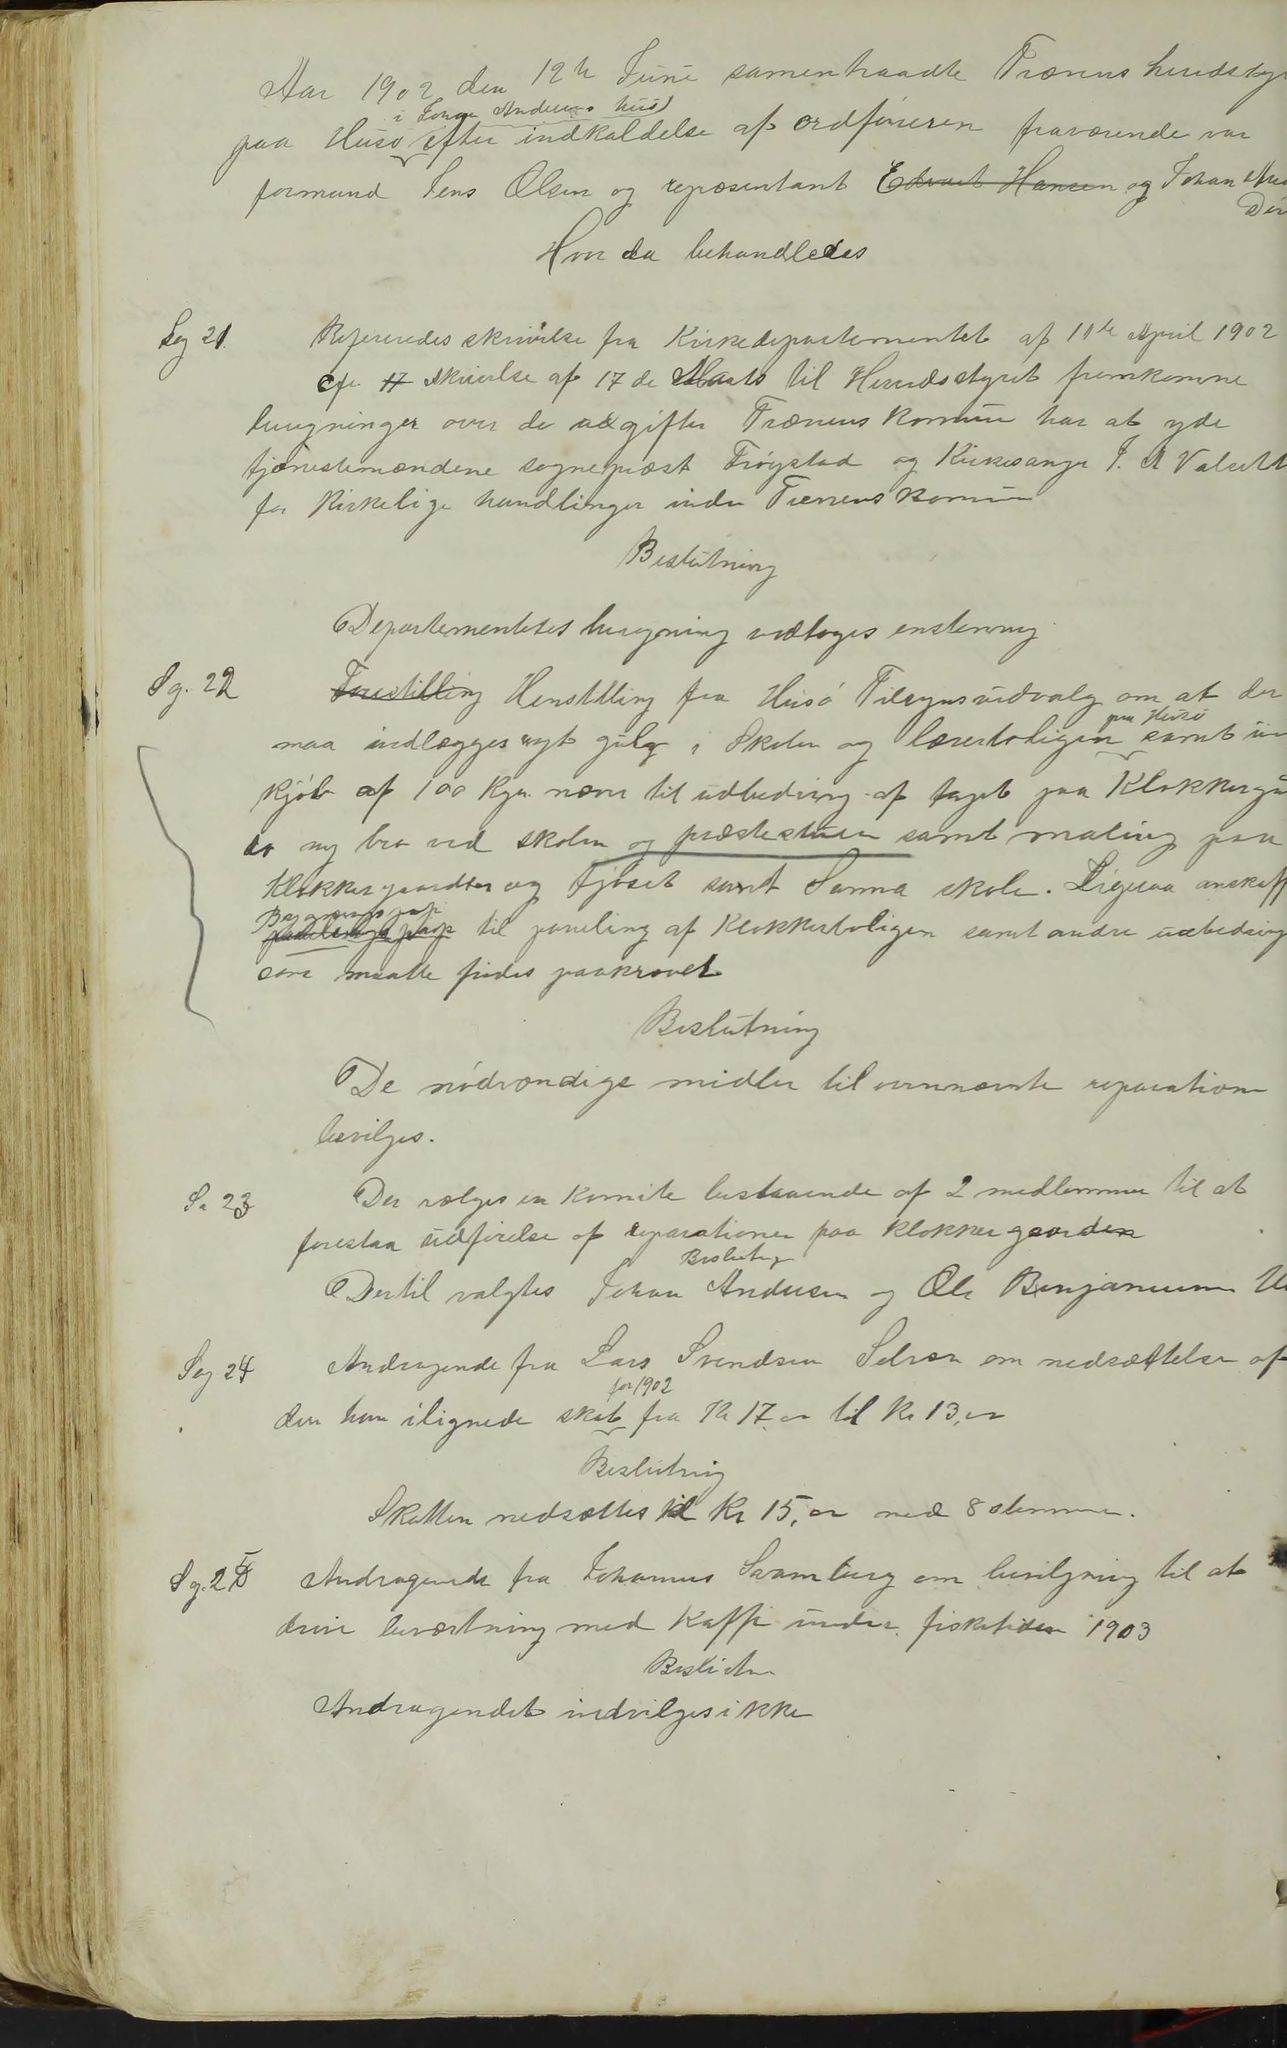 Aar 1902 den 12te Juni samentraadte Trænens heredsty
i Johan Andersens hus
paa Husø efter indkaldelse af ordføreren fraværende var
formand Jens Olsen og repræsentant Edvart Hansen og Johan
Hvor da behandledes
Sag 21. Refereredes skrivelse fra Kirkedepartementet af 11te April 1902
cfr 17 skrivelse af 17de Marts til Heredsstyret fremkomne
beregninger over de udgifter Trænens Komune har at yde
tjenestemændene sogneprest Frøystad og Kirkesanger J. A Valsett
for Kirkelige handlinger inden Trænens Komune
Beslutning
Departementets beregning vedtoges enstemmig
Sg. 22 Forestilling Henstilling fra Husø Tilsynsudvalg om at der
paa Husø
maa indlægges nyt gulv i Skolen og lærerboligen samt in
kjøb af 100 Kgr. næver til udbedring af taget paa Klokkergaa
ny bro ved skolen og præstestuen samt maling paa
Klokkergaarden og fjøset samt Sanna skole. Ligesaa anskaff
panelings pap til paneling af Klokkerboligen samt andre udbedring
som maatte findes paakrævet
Beslutning
De nødvendige midler til ovennævnte reparationer
bevilges.
Sa 23 Der vælges en Komite bestaaende af 2 medlemmer til at
forestaa udførelse af reparationer paa Klokkergaarden
Beslutning
Dertil valgtes Johan Andersen og Ole Benjaminsen
Sag 24 Andragende fra Lars Svendsen Selvær om nedsættelse af
for 1902
den ham ilignede skat fra Kr 17,00 til Kr 13,00
Beslutning
Skatten nedsættes til Kr 15,00 med 8 stemmer.
Sg. 25 Andragende fra Johannes Svamberg om bevilgning til at
drive beværtning med Kaffe under fisketiden 1903
Beslutn
Andragendet indvilges ikke